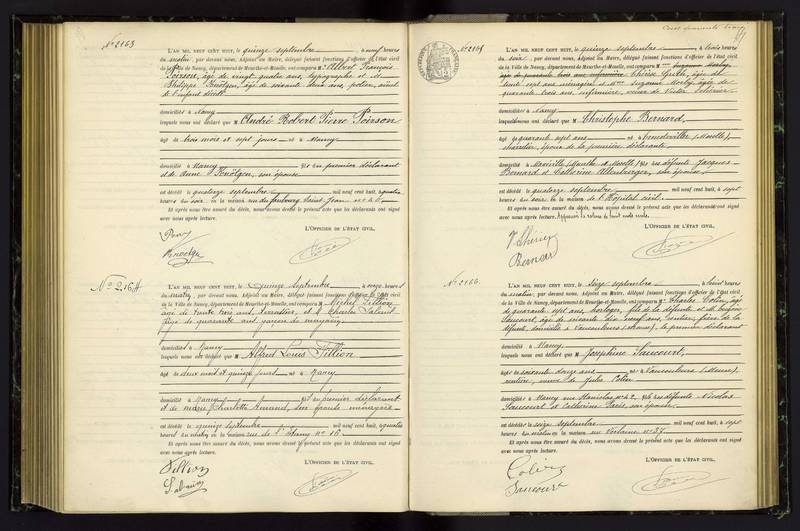 No 2163
L'AN MIL NEUF CENT HUIT, le quinze septembre à neuf heures
du matin, par devant nous, Adjoint au Maire, délégué faisant fonctions d'officier de l'état civil
de la Ville de Nancy, département de Meurthe-et-Moselle, ont comparu M Albert François
Poirson, âgé de vingt quatre ans, typographe et M.
Philippe Knötgen, âgé de soixante deux ans, potier, aïeul
de l'enfant décédé
domiciliés à Nancy
lesquels nous ont déclaré que M André Robert Pierre Poirson
âgé de trois mois et sept jours né à Nancy
domicilié à Nancy fils du premier déclarant
et de Anne Knötgen, son épouse
est décédé le quatorze septembre mil neuf cent huit, à quatre
heures du soir en la maison rue du faubourg Saint Jean
Et après nous être assuré du décès, nous avons dressé le présent acte que les déclarants ont signé
avec nous après lecture.
L'OFFICIER DE L'ÉTAT CIVIL,
No 2164
L'AN MIL NEUF CENT HUIT, le Quinze septembre à onze heures
du matin, par devant nous, Adjoint au Maire, délégué faisant fonctions d'officier de l'état civil
de la Ville de Nancy, département de Meurthe-et-Moselle, ont comparu M Michel Fillion
âgé de trente trois ans, serrurier, et M Charles
âgé de quarante ans garçon de magasin
domiciliés à Nancy
lesquels nous ont déclaré que M Alfred Louis Fillion
âgé de deux mois et quinze jours né à Nancy
domicilié à Nancy fils du premier déclarant
et de Marie Charlotte Amand, son épouse ménagère
est décédé le quinze septembre mil neuf cent huit, à quatre
heures du matin en la maison rue de No 16
Et après nous être assuré du décès, nous avons dressé le présent acte que les déclarants ont signé
avec nous après lecture.
L'OFFICIER DE L'ÉTAT CIVIL,
Fillion
No 2165
L'AN MIL NEUF CENT HUIT, le quinze septembre à trois heures
du soir, par devant nous, Adjoint au Maire, délégué faisant fonctions d'officier de l'état civil
de la Ville de Nancy, département de Meurthe-et-Moselle, ont comparu M
âgée de quarante trois ans infirmière Thérèse âgée de
trente sept ans ménagère et Suzanne âgée de
quarante trois ans, infirmière, veuve de Victor
domiciliés à Nancy
lesquels nous ont déclaré que M Christophe Bernard,
âgé de quarante sept ans né à (Moselle),
époux de la première déclarante
domicilié à Maxéville (Meurthe et Moselle) fils des défunts Jacques
Bernard et Catherine Allenberger, son épouse,
est décédé le quatorze septembre mil neuf cent huit, à sept
heures du soir en la maison de l'Hôpital civil.
Et après nous être assuré du décès, nous avons dressé le présent acte que les déclarants ont signé
avec nous après lecture.
L'OFFICIER DE L'ÉTAT CIVIL,
Bernard
No 2166.
L'AN MIL NEUF CENT HUIT, le Seize septembre à huit heures
du matin, par devant nous, Adjoint au Maire, délégué faisant fonctions d'officier de l'état civil
de la Ville de Nancy, département de Meurthe-et-Moselle, ont comparu M Charles Colin, âgé
de quarante sept ans, horloger, fils de la défunte et M Eugène
Saucourt, âgé de soixante dix neuf ans, rentier, frère de la
défunte, domicilié à Vaucouleurs (Meuse), le premier déclarant
domiciliés à Nancy
lesquels nous ont déclaré que M Joséphine Saucourt,
âgée de soixante douze ans née à Vaucouleurs (Meuse),
rentière, veuve de Jules Colin
domiciliée à Nancy rue Stanislas No 42, fille des défunts Nicolas
Saucourt et Catherine Paris, son épouse
est décédée le seize septembre mil neuf cent huit, à sept
heures du matin en la maison rue Verlaine No 37
Et après nous être assuré du décès, nous avons dressé le présent acte que les déclarants ont signé
avec nous après lecture.
L'OFFICIER DE L'ÉTAT CIVIL,
Colin
Saucourt